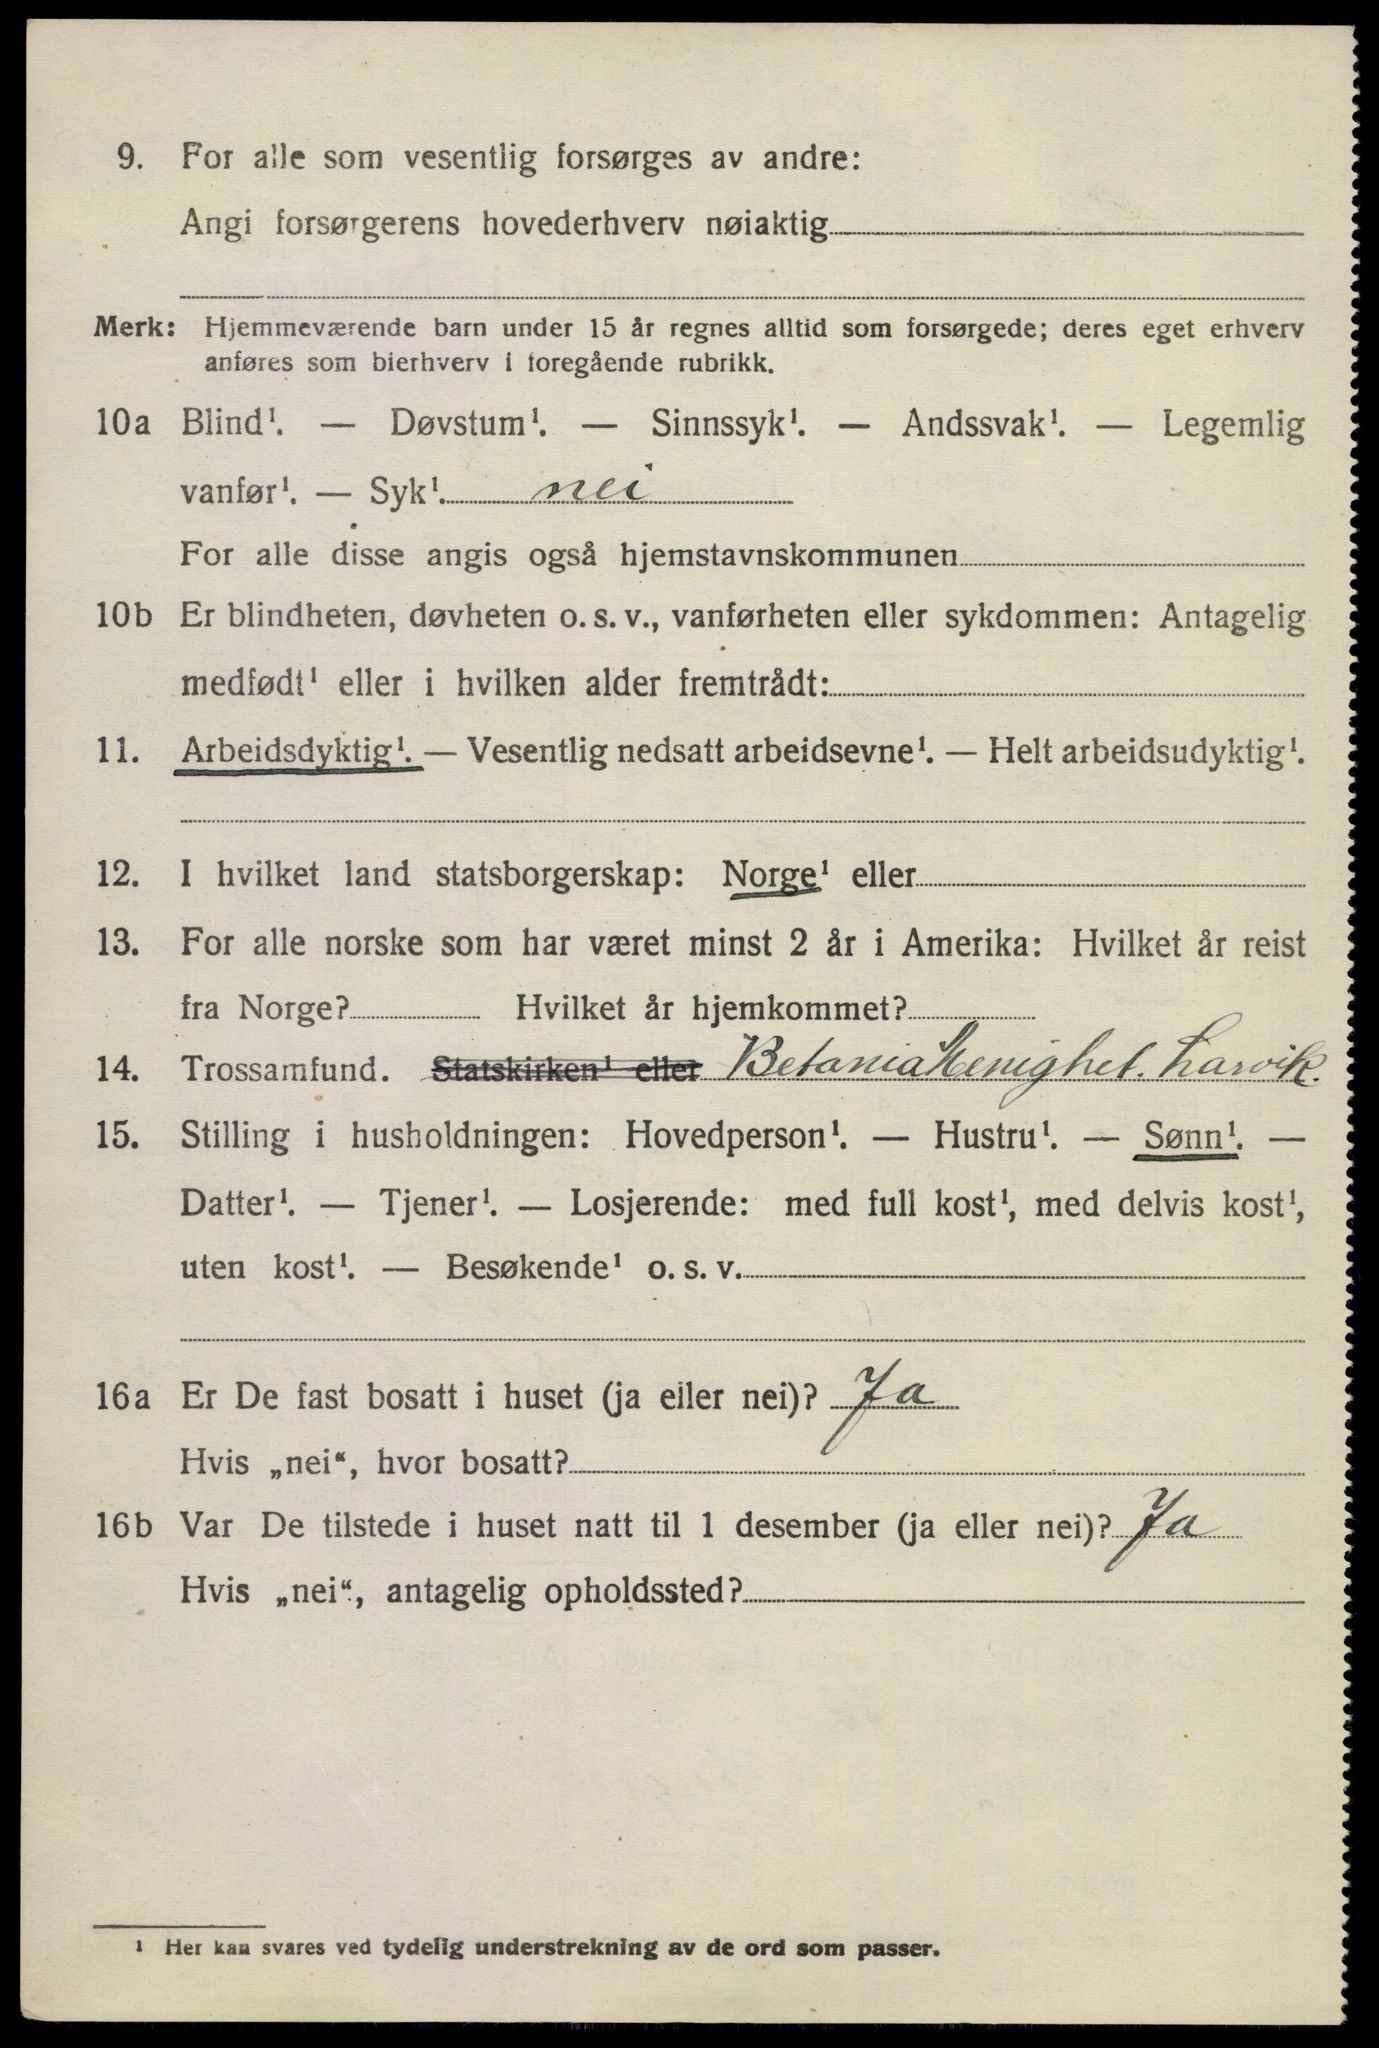 9. For alle som vesentlig forsørges av andre:
Angi forsørgerens hovederhverv nøiaktig
Merk: Hjemmeværende barn under 15 år regnes alltid som forsørgede; deres eget erhverv
anføres som bierhverv i foregående rubrikk.
10a Blind¹. — Døvstum¹. — Sinnssyk¹. — Andssvak¹. — Legemlig
vanfør¹. — Syk¹. nei
For alle disse angis også hjemstavnskommunen
10b Er blindheten, døvheten o. s. v., vanførheten eller sykdommen: Antagelig
medfødt¹ eller i hvilken alder fremtrådt:
11. Arbeidsdyktig¹. — Vesentlig nedsatt arbeidsevne¹. — Helt arbeidsudyktig¹.
12. I hvilket land statsborgerskap: Norge¹ eller
13. For alle norske som har været minst 2 år i Amerika: Hvilket år reist
fra Norge? Hvilket år hjemkommet?
14. Trossamfund. Statskirken¹ eller Betania Menighet. Larvik.
15. Stilling i husholdningen: Hovedperson¹. — Hustru¹. — Sønn¹. —
Datter¹. — Tjener¹. — Losjerende: med full kost¹, med delvis kost¹,
uten kost¹. — Besøkende¹ o. s. v.
16a Er De fast bosatt i huset (ja eller nei)? Ja
Hvis „nei“, hvor bosatt?
16b Var De tilstede i huset natt til 1 desember (ja eller nei)? Ja
Hvis „nei“, antagelig opholdssted?
¹ Her kan svares ved tydelig understrekning av de ord som passer.